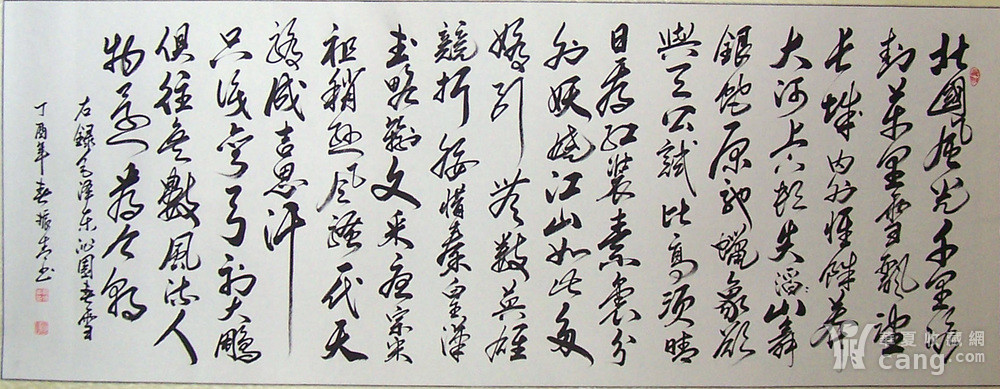 北國風光千里冰
封萬里雪飄望
长城内外惟餘莽
大河上下顿失滔山舞
銀蛇原馳蠟象欲
與天公試比高须晴
日看红装素裹分
外妖娆江山如此多
娇引无数英雄
競折腰惜秦皇漢
武略输文采唐宗宋
祖稍逊风騷一代天
骄成吉思汗
只识弯弓射大鵬
俱往矣數風流人
物还看今朝
右録毛泽东沁園春雪
丁酉年春振书
華夏收藏網
cang.com